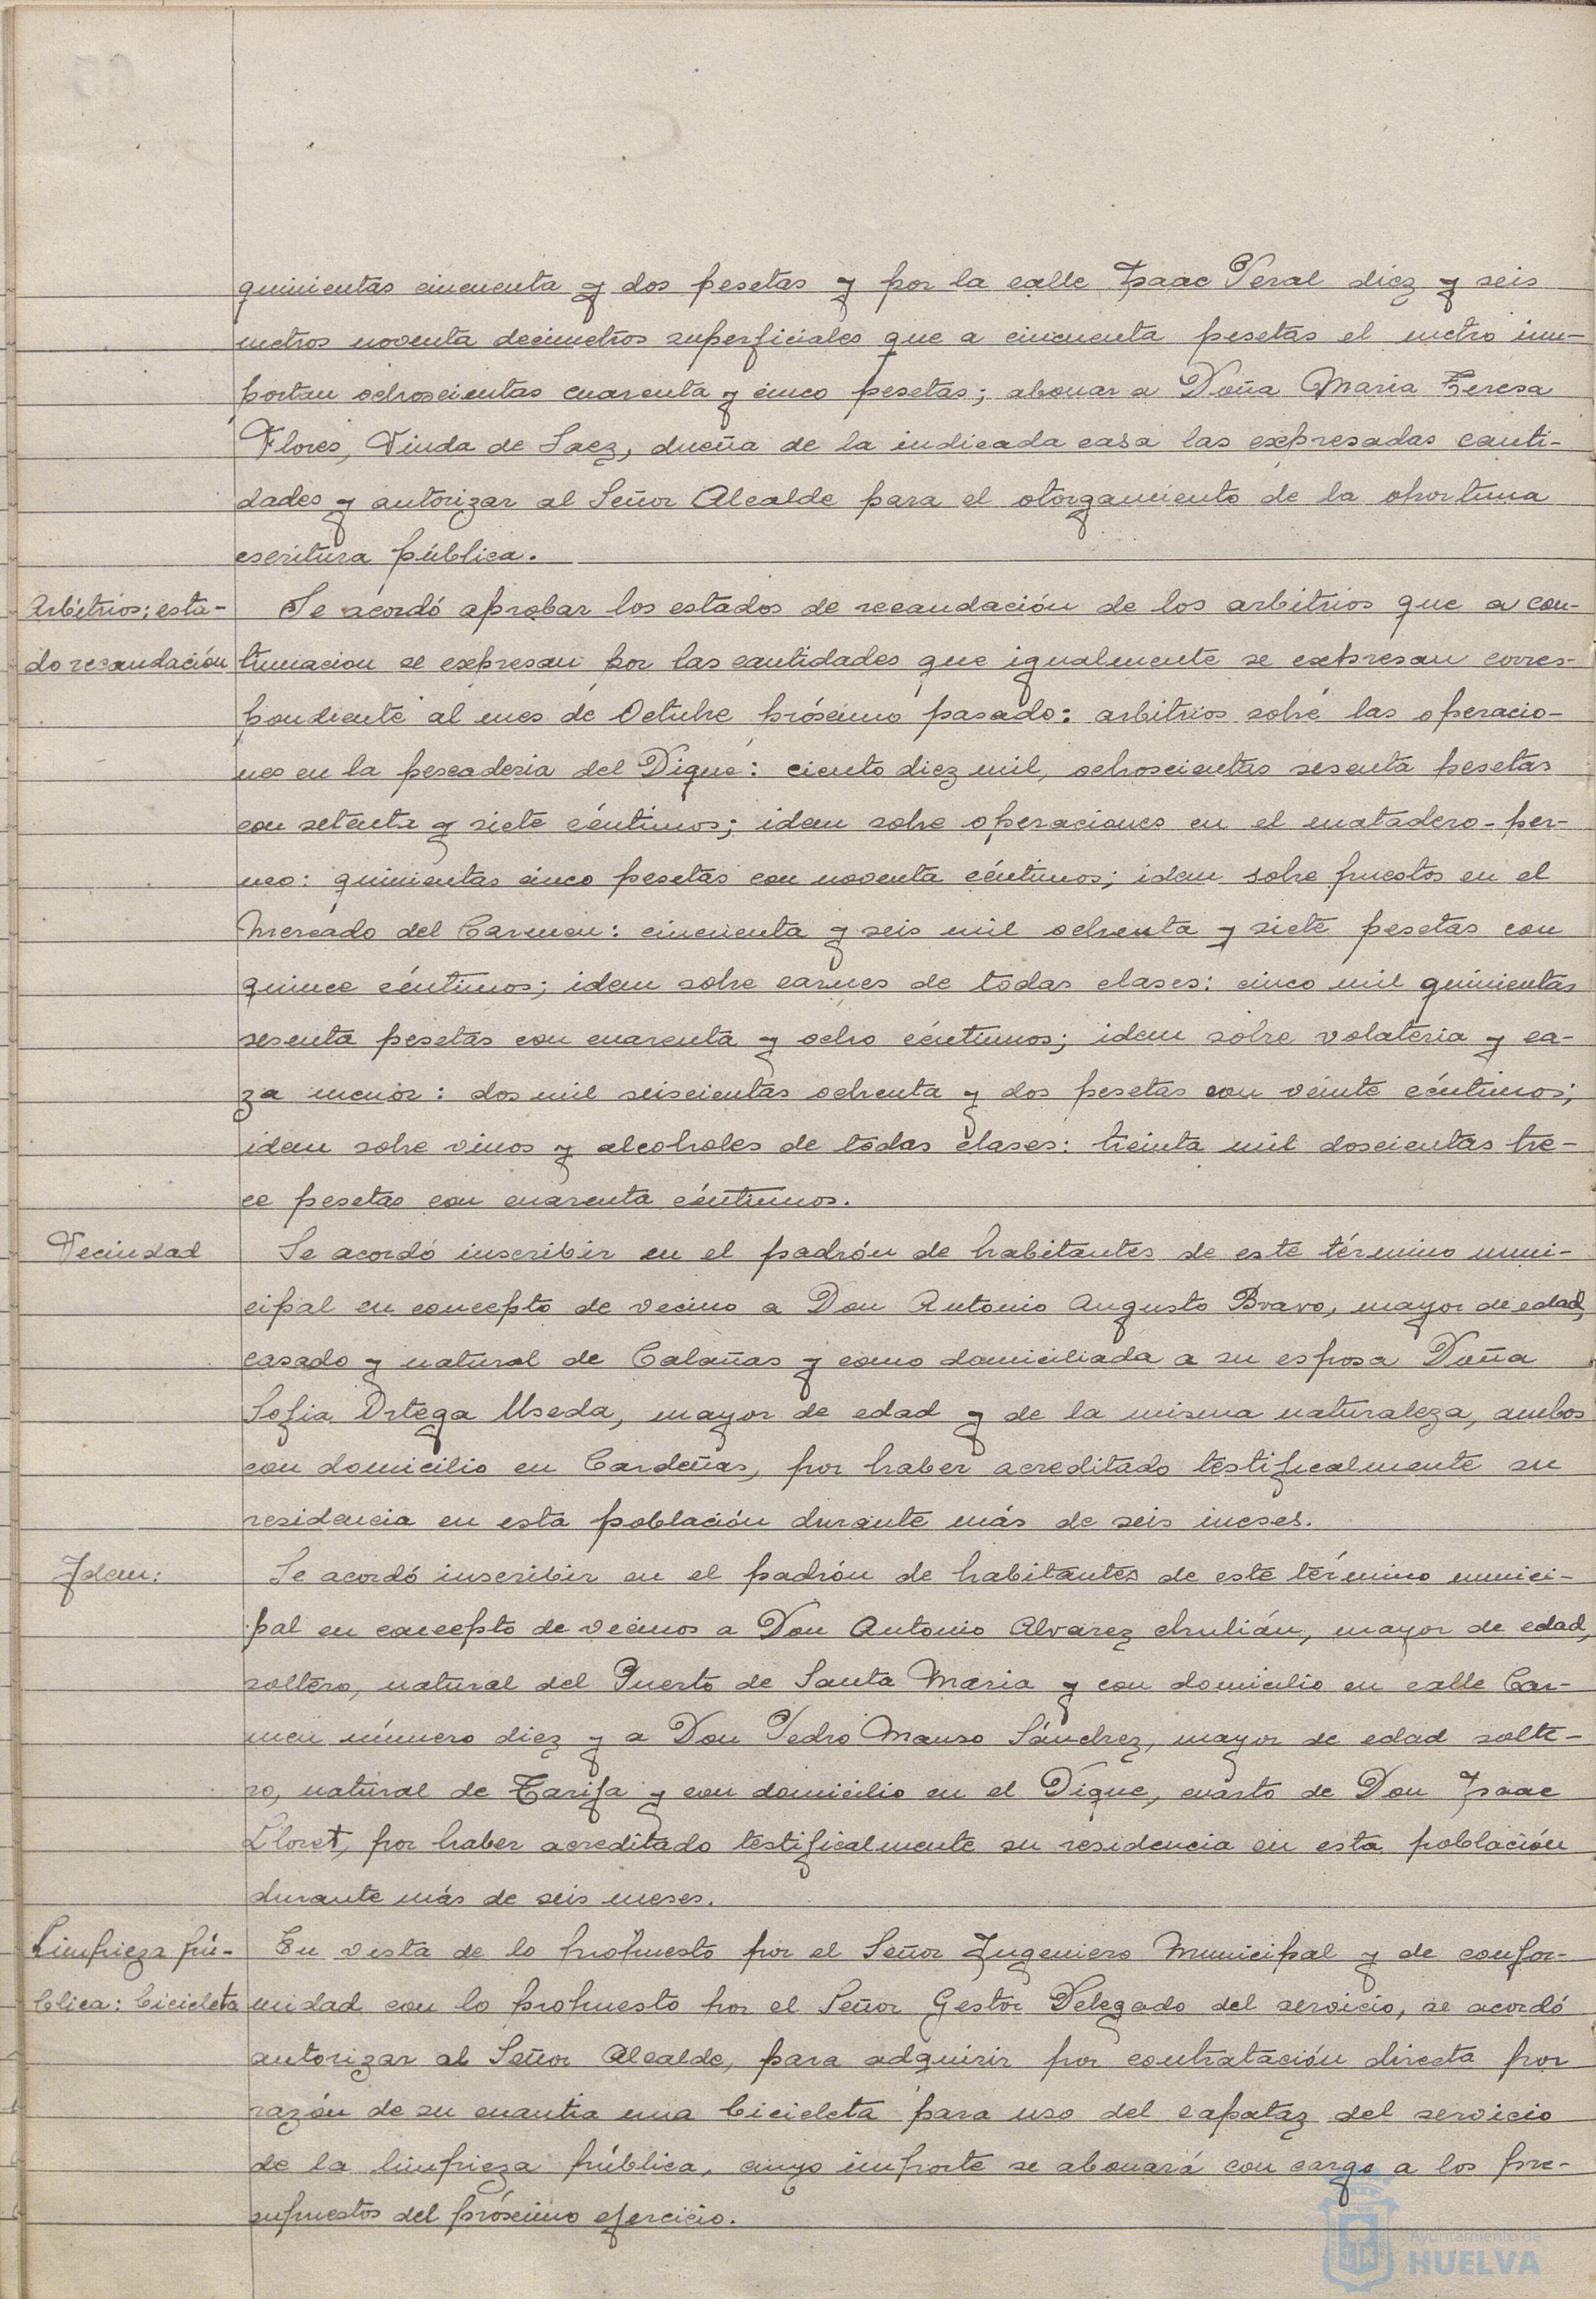 quinientas cincuenta y dos pesetas y por la calle Isaac Peral diez y seis
metros noventa decimetros superficiales que a cincuenta pesetas el metro im-
portan ochoscientas cuarenta y cinco pesetas; abonar a Doña Maria Teresa
Flores, Viuda de Saez, dueña de la indicada casa las expresadas canti-
dades y autorizar al Señor Alcalde para el otorgamiento de la oportuna
escritura pública.
Arbitrios; esta-
do recaudación
Se acordó aprobar los estados de recaudación de los arbitrios que a con-
tinuacion se expresan por las cantidades que igualmente se expresan corres-
pondiente al mes de Octubre próximo pasado: arbitrios sobre las operacio-
nes en la pescaderia del Dique: ciento diez mil, ochoscientas sesenta pesetas
con setenta y siete céntimos; idem sobre operaciones en el matadero-per-
neo: quinientas cinco pesetas con noventa céntimos; idem sobre puestos en el
Mercado del Carmen: cincuenta y seis mil ochenta y siete pesetas con
quince céntimos; idem sobre carnes de todas clases: cinco mil quinientas
sesenta pesetas con cuarenta y ocho céntimos; idem sobre volateria y ca-
za menor: dos mil seiscientas ochenta y dos pesetas con veinte céntimos;
idem sobre vinos y alcoholes de todas clases: treinta mil doscientas tre-
ce pesetas con cuarenta céntimos.
Vecindad
Se acordó inscribir en el padrón de habitantes de este término muni-
cipal en concepto de vecino a Don Antonio Augusto Bravo, mayor de edad,
casado y natural de Calañas y como domiciliada a su esposa Doña
Sofia Ortega Useda, mayor de edad y de la misma naturaleza, ambos
con domicilio en Cardeñas, por haber acreditado testificalmente su
residencia en esta población durante más de seis meses.
Idem:
Se acordó inscribir en el padrón de habitantes de este término munici-
pal en concepto de vecinos a Don Antonio Alvarez chulián, mayor de edad,
soltero, natural del Puerto de Santa Maria y con domicilio en calle Car-
men número diez y a Don Pedro Manso Sánchez, mayor de edad solte-
ro, natural de Tarifa y con domicilio en el Dique, cuarto de Don Isaac
Lloret, por haber acreditado testificalmente su residencia en esta población
durante más de seis meses.
Limpieza pú-
blica: bicicleta
En vista de lo propuesto por el Señor Ingeniero Municipal y de confor-
midad con lo propuesto por el Señor Gestor Delegado del servicio, se acordó
autorizar al Señor Alcalde, para adquirir por contratación directa por
razón de su cuantia una bicicleta para uso del capataz del servicio
de la limpieza pública, cuyo importe se abonará con cargo a los pre-
supuestos del próximo ejercicio.
Ayuntamiento de
HUELVA